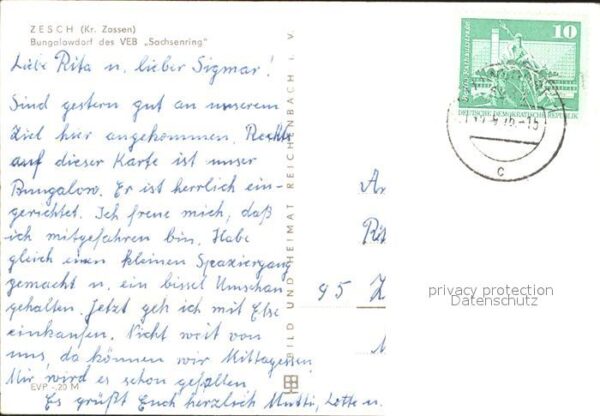 ZESCH (Kr. Zossen)
Bungalowdorf des VEB „Sachsenring"
Liebe Rita u. lieber Sigmar!
Sind gestern gut an unserem
Ziel hier angekommen. Rechts
auf dieser Karte ist unser
Bungalow. Er ist herrlich ein-
gerichtet. Ich freue mich, daß
ich mitgefahren bin. Habe
gleich einen kleinen Spaziergang
gemacht u. ein bissel Umschau
gehalten. Jetzt geh ich mit Else
einkaufen. Nicht weit von
uns, da können wir Mittagessen.
Mir wird es schon gefallen
Es grüßt Euch herzlich Mutti, Lotte u.
EVP -,20 M
BILD UND HEIMAT REICHENBACH i. V.
10
DEUTSCHE DEMOKRATISCHE REPUBLIK
c
An
Rit
95 Z
privacy protection
Datenschutz